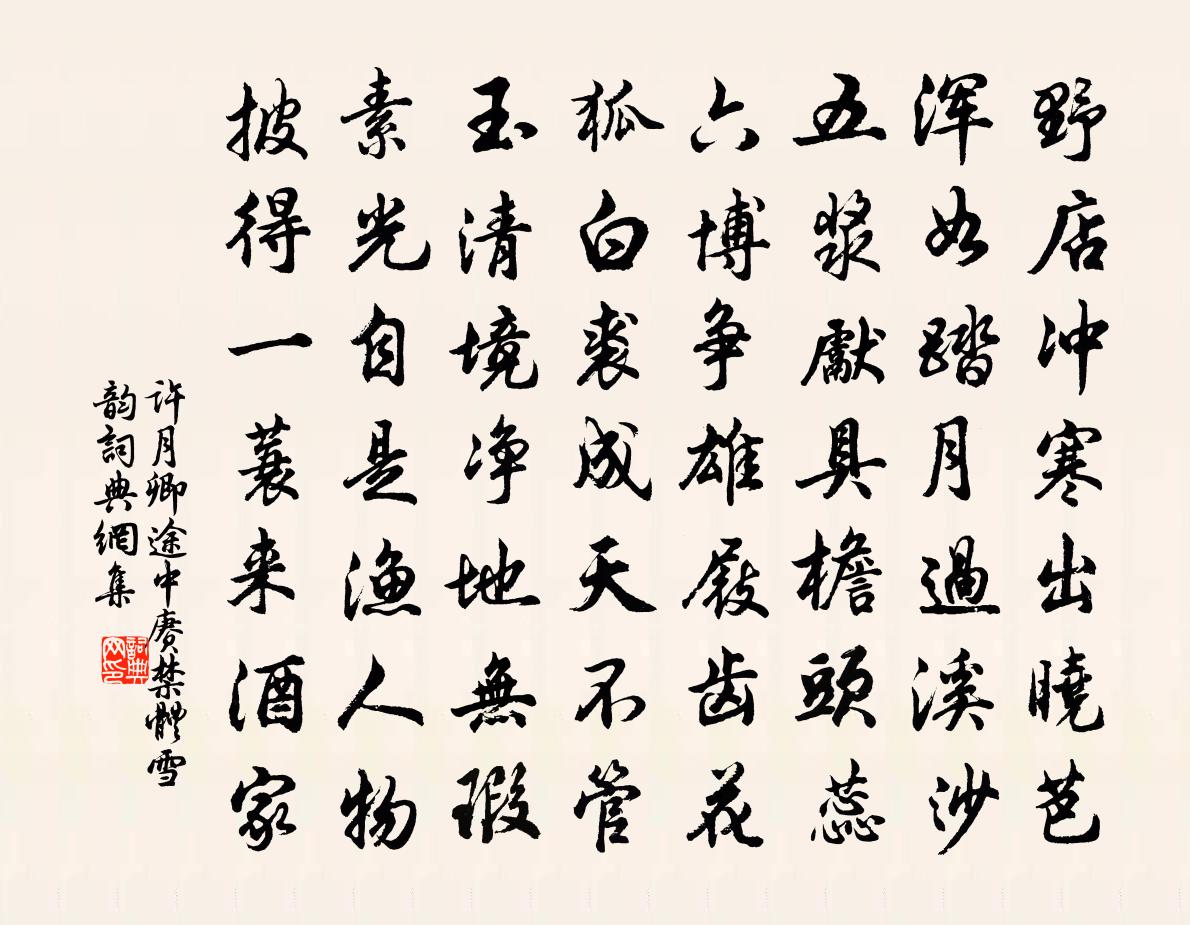 野店冲寒出曉芭
浑如踏月過溪沙
五漿獻具檐頭蕊
六博争雄屐齿花
狐白裘成天不管
玉清境净地無瑕
素光自是漁人物
披得一蓑来酒家
许月卿途中赓禁體雪
韵詞典網集